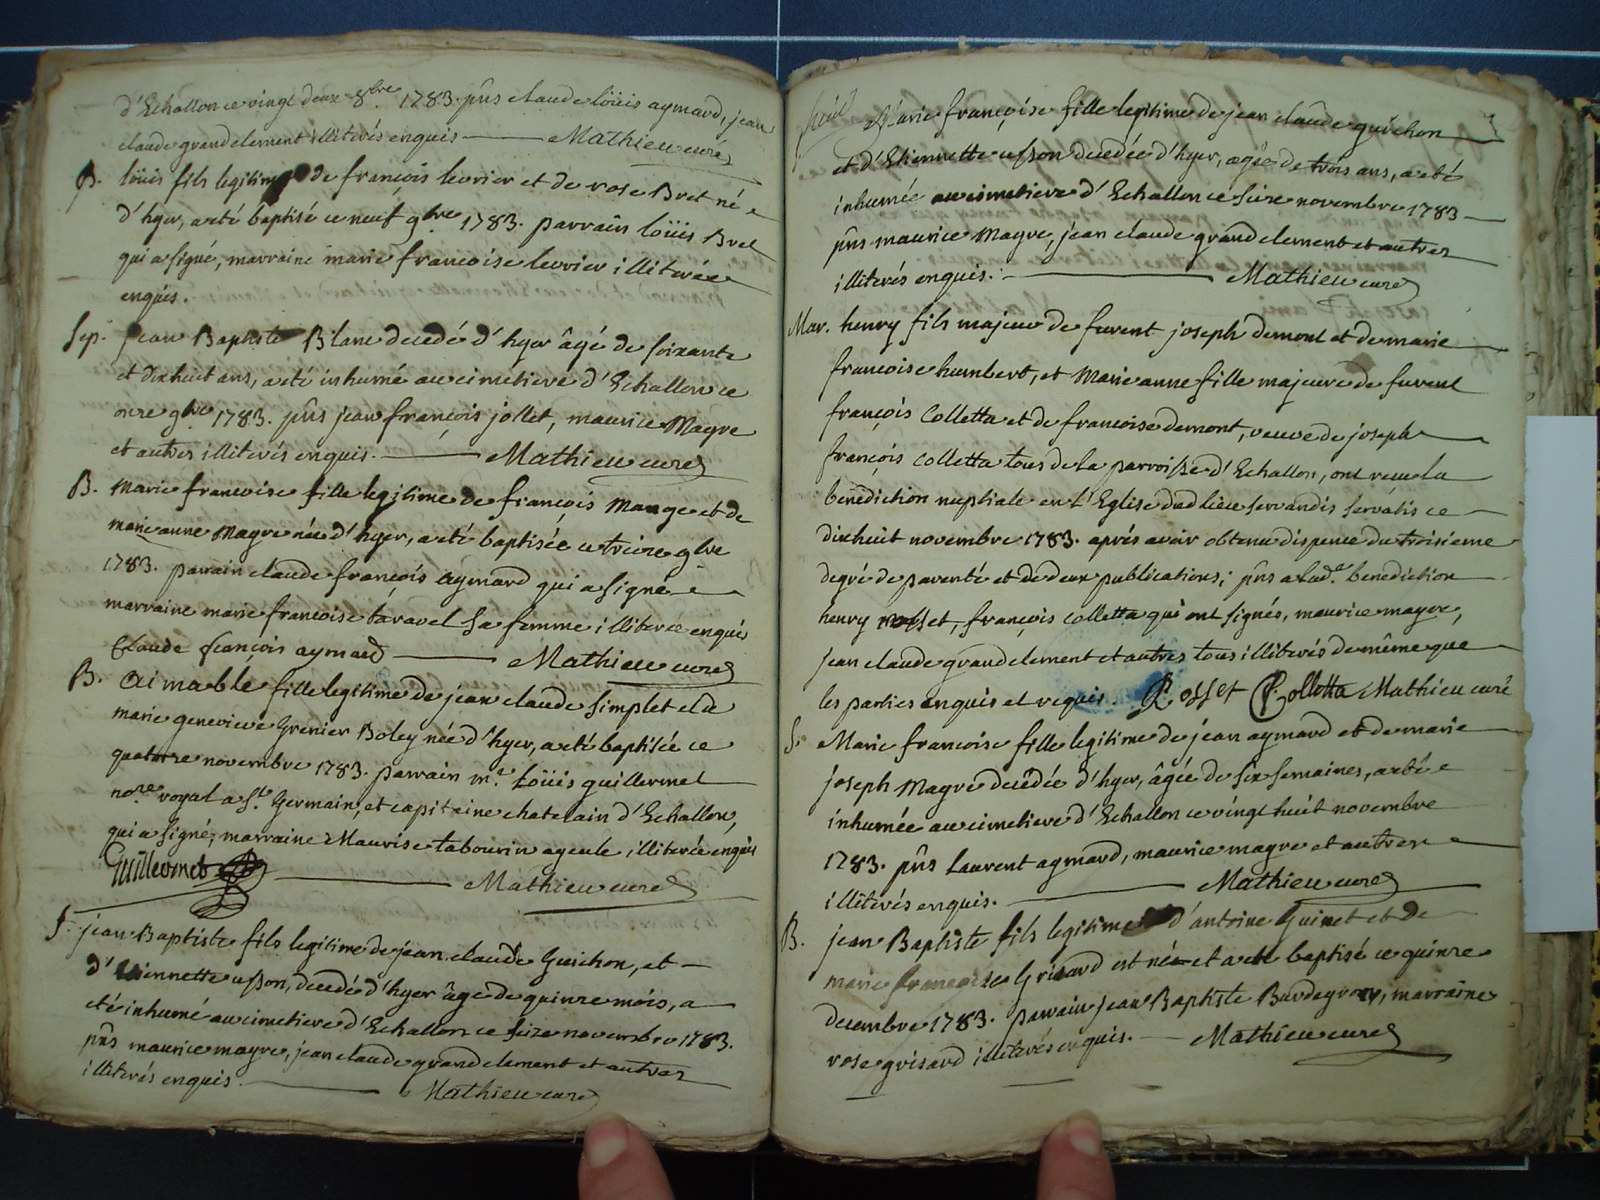 d'Echallon ce vingt deux 8bre 1783. pñs claude loüis aymard, jean
claude grandclement illiterés enquis Mathieu curé
B. loüis fils legitime de françois levrier et de rose Bret né
d'hyer, a eté baptisé ce neuf 9bre 1783. parrain loüis Bret
qui a signé, marraine marie francoise levrier illiterée
enquis.
Sep. jean Baptiste Blanc decedé d'hyer âgé de soixante
et dixhuit ans, a eté inhumé au cimetiere d'Echallon ce
onze 9bre 1783. pñs jean françois jollet, maurice Magre
et autres illiterés enquis. Mathieu curé
B. Marie francoise fille legitime de françois Mange et de
marie anne Magre née d'hyer, a eté baptisée ce treize 9bre
1783. parrain claude françois aymard qui a signé
marraine marie francoise taravel sa femme illiterée enquis
Claude francois aymard Mathieu curé
B. Aimable fille legitime de jean claude Simplet et de
marie genevieve Grenier Boley née d'hyer, a eté baptisée ce
quatorze novembre 1783. parrain me Loüis guillermet
nore royal a St Germain, et capitaine chatelain d'Echallon,
qui a signé, marraine Maurise tabourin ayeule illiterée enquis
Guillermet Mathieu curé
S. jean Baptiste fils legitime de jean claude Guichon, et
d'Etiennette usson, decedé d'hyer âgé de quinze mois, a
eté inhumé au cimetiere d'Echallon ce seize novembre 1783.
pñs maurice magre, jean claude grandclement et autres
illiterés enquis. Mathieu curé
Marie françoise fille legitime de jean claude guichon
et d'Etiennette usson decedée d'hyer, agée de trois ans, a eté
inhumée au cimetiere d'Echallon ce seize novembre 1783
pñs maurice Magre, jean claude grandclement et autres
illiterés enquis. Mathieu curé
Mar. henry fils majeur de furent joseph demont et de marie
francoise humbert, et Marie anne fille majeure de furent
françois Colletta et de francoise demont, veuve de joseph
françois Colletta tous de la parroisse d'Echallon, ont recu la
benediction nuptiale en l'Eglise dud lieu servandis servatis ce
dixhuit novembre 1783. aprés avoir obtenu dispence du troisieme
degré de parenté et de deux publications; pñs a lade benediction
henry rosset, françois Colletta qui ont signés, maurice magre,
jean claude grandclement et autres tous illiterés de même que
les parties enquis et requis. Rosset Colletta Mathieu curé
S. Marie francoise fille legitime de jean aymard et de marie
joseph Magre decédée d'hyer, âgée de six semaines, a eté
inhumée au cimetiere d'Echallon ce vingt huit novembre
1783. pñs Laurent aymard, maurice magre et autres
illiterés enquis. Mathieu curé
B. jean Baptiste fils legitime d'antoine Guinet et de
marie francoise Grisard est né et a eté baptisé ce quinze
decembre 1783. parrain jean Baptiste marraine
rose grisard illiterés enquis. Mathieu curé